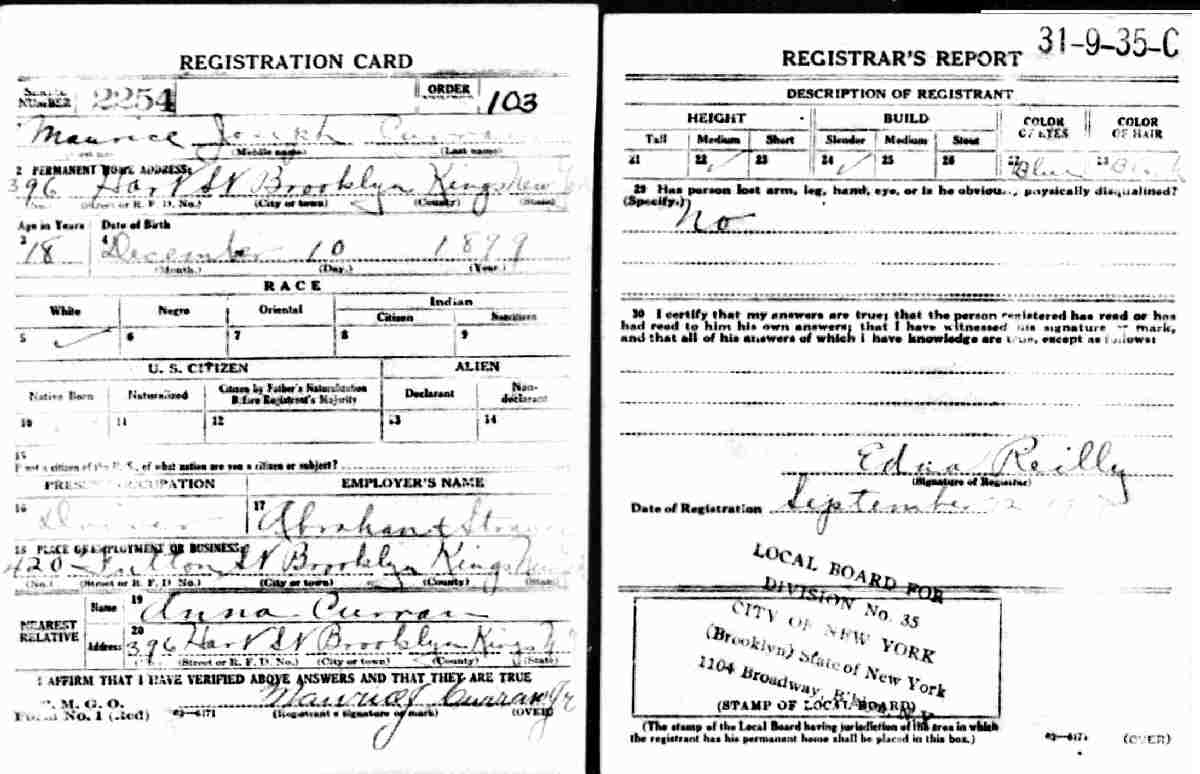 REGISTRATION CARD
SERIAL NUMBER 2254 ORDER 103
Maurice Joseph Curran
(First name) (Middle name) (Last name)
2 PERMANENT HOME ADDRESS:
396 Hart St Brooklyn Kings New York
(No.) (Street or R. F. D. No.) (City or town) (County) (State)
Age in Years Date of Birth
3 18 4 December 10 1899
(Month.) (Day.) (Year.)
RACE
White Negro Oriental Indian
Citizen Noncitizen
5 6 7 8 9
U. S. CITIZEN ALIEN
Native Born Naturalized Citizen by Father's Naturalization Before Registrant's Majority Declarant Non-declarant
10 11 12 13 14
15
If not a citizen of the U. S., of what nation are you a citizen or subject?
PRESENT OCCUPATION EMPLOYER'S NAME
16 17 Abraham & Straus
18 PLACE OF EMPLOYMENT OR BUSINESS:
420 Fulton St Brooklyn Kings New
(No.) (Street or R. F. D. No.) (City or town) (County) (State)
NEAREST RELATIVE Name 19 Anna Curran
Address 20 396 Hart St Brooklyn Kings N.Y.
(No.) (Street or R. F. D. No.) (City or town) (County) (State)
I AFFIRM THAT I HAVE VERIFIED ABOVE ANSWERS AND THAT THEY ARE TRUE
P. M. G. O.
Form No. 1 (Red) 03-6171 Maurice J Curran Jr
(Registrant's signature or mark) (OVER)
31-9-35-C
REGISTRAR'S REPORT
DESCRIPTION OF REGISTRANT
HEIGHT BUILD COLOR OF EYES COLOR OF HAIR
Tall Medium Short Slender Medium Stout
21 22 23 24 25 26 27 Blue 28
29 Has person lost arm, leg, hand, eye, or is he obviously physically disqualified?
(Specify.) No
30 I certify that my answers are true; that the person registered has read or has
had read to him his own answers; that I have witnessed his signature or mark,
and that all of his answers of which I have knowledge are true, except as follows:
Edna Reilly
(Signature of Registrar)
Date of Registration September 12
LOCAL BOARD FOR
DIVISION No. 35
CITY OF NEW YORK
(Brooklyn) State of New York
1104 Broadway, B'klyn, N.Y.
(STAMP OF LOCAL BOARD)
(The stamp of the Local Board having jurisdiction of the area in which
the registrant has his permanent home shall be placed in this box.)
03-6171 (OVER)